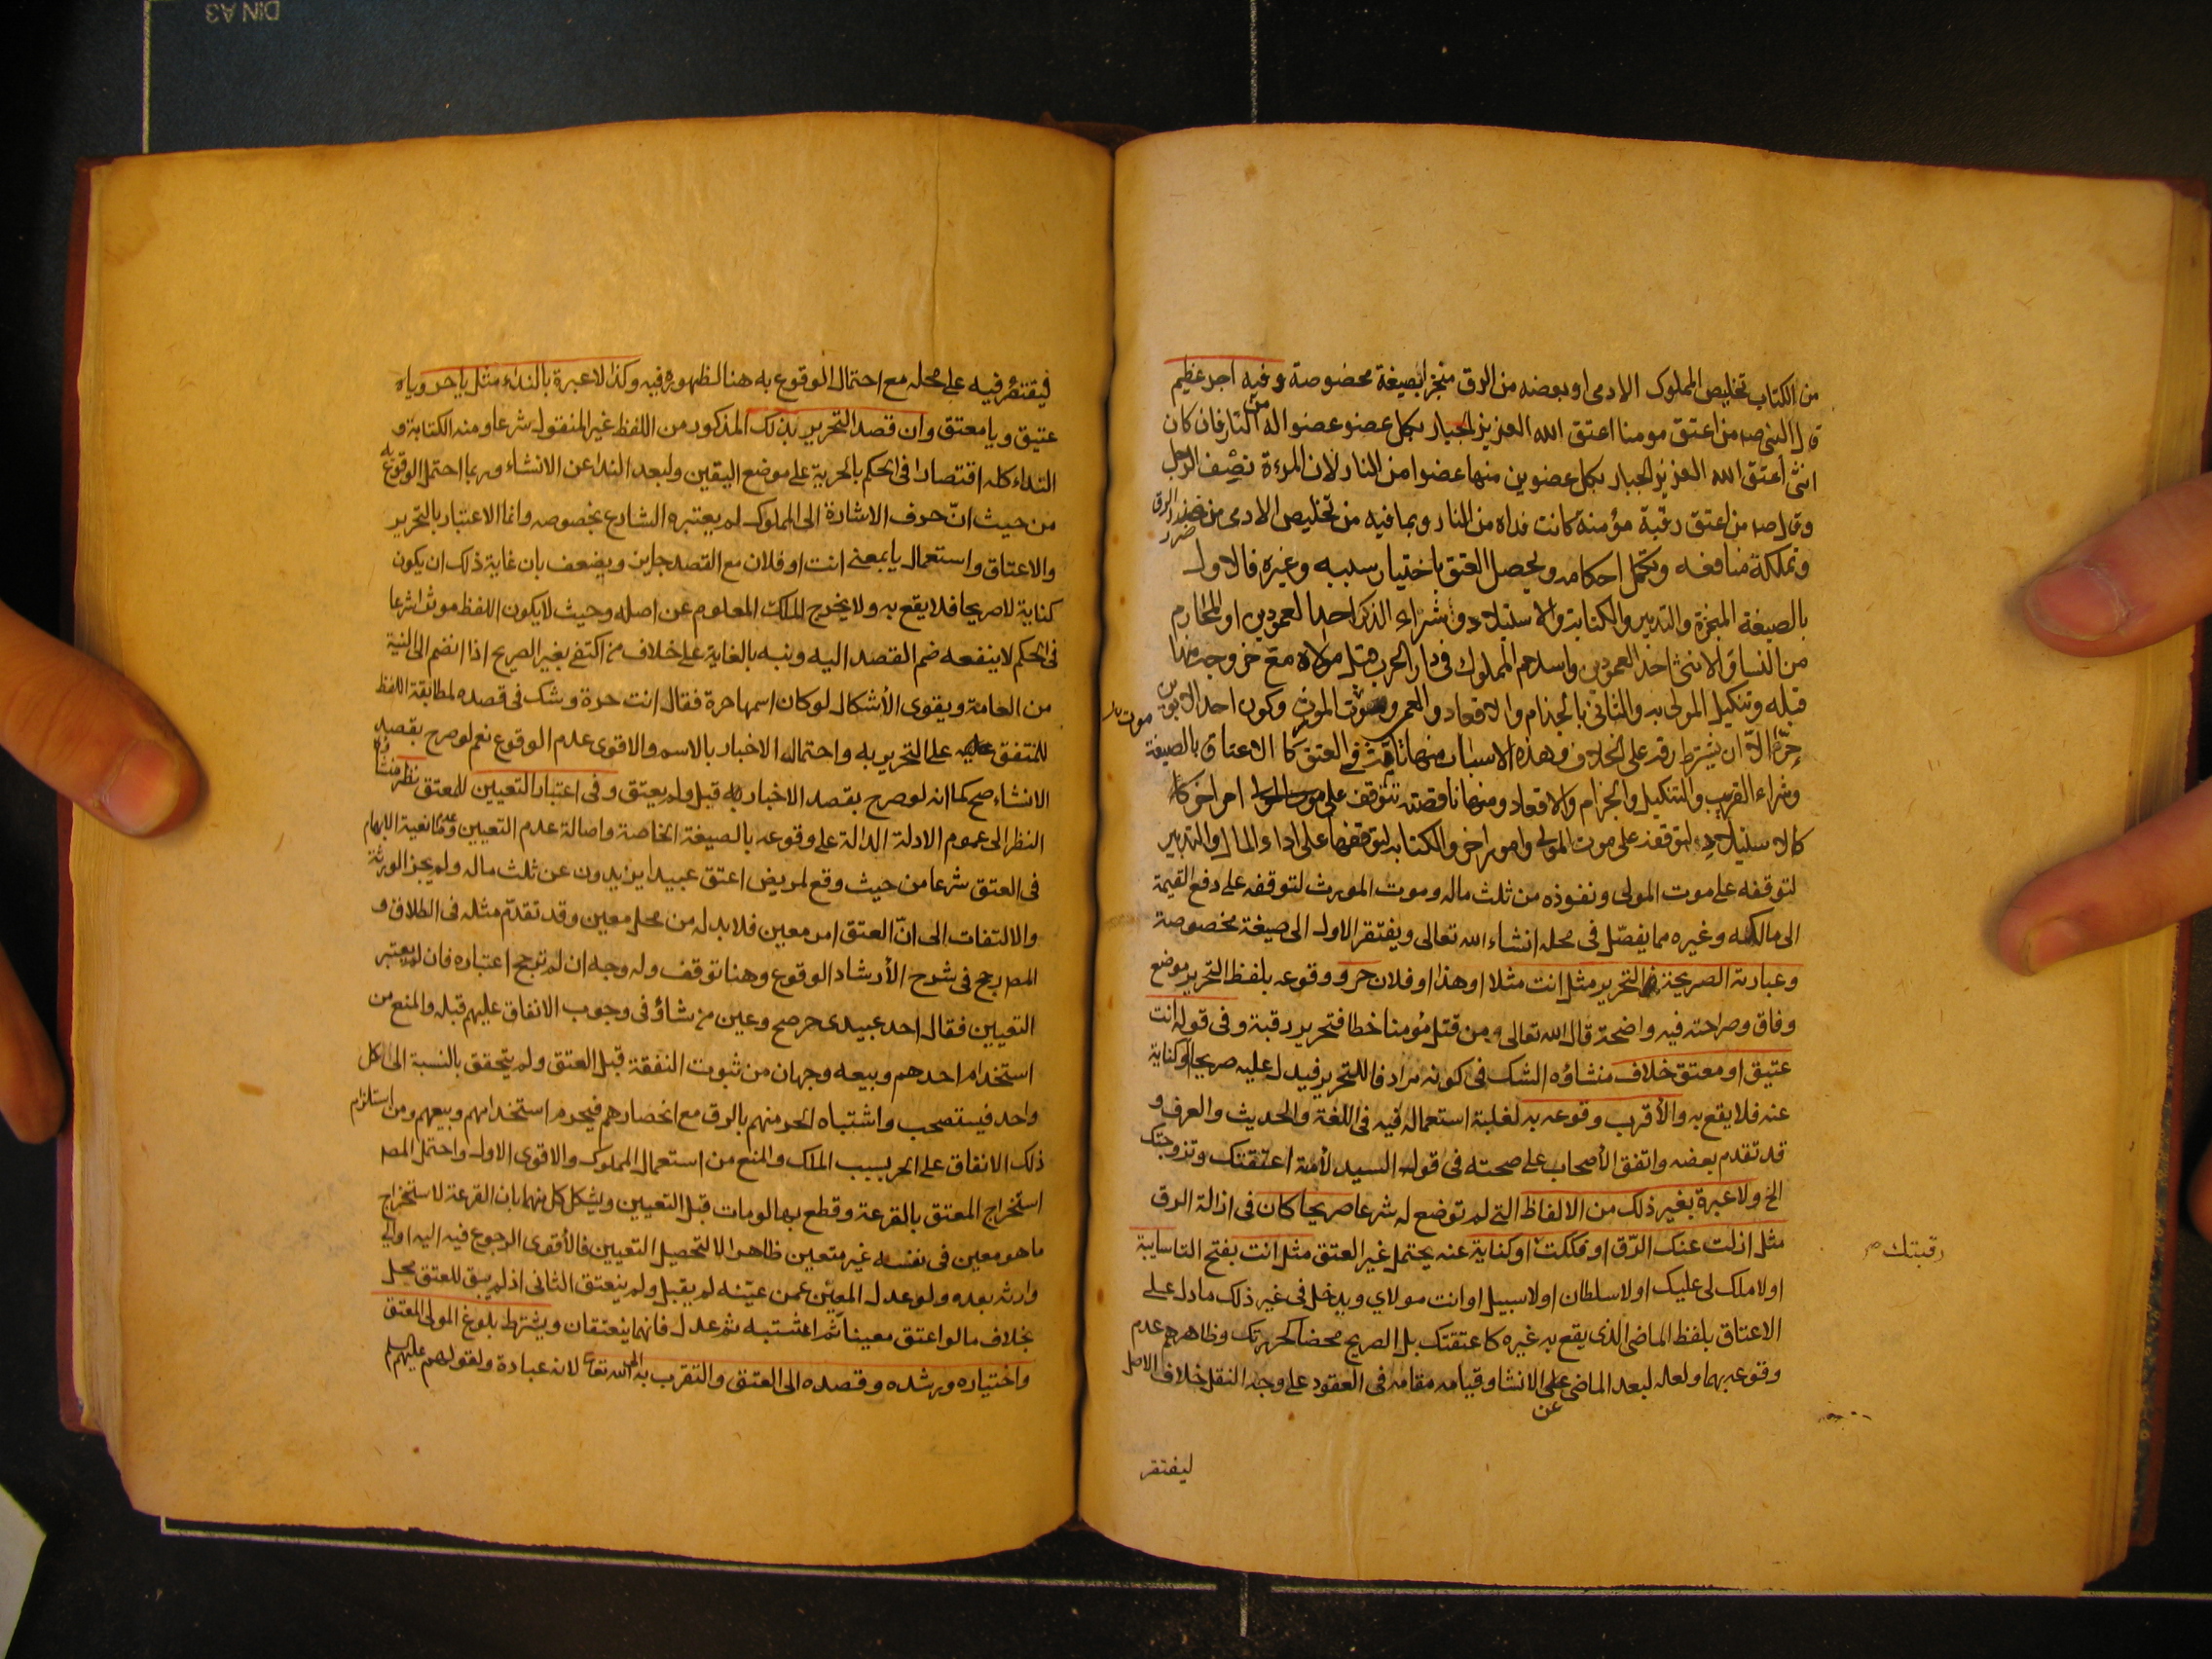 من الكتاب تخليص المملوك الادمى او بعضه من الرق منجزا بصيغة مخصوصة وفيه اجر عظيم
قال النبي صم من اعتق مومنا اعتق الله العزيز الجبار بكل عضو عضوا له من النار فان كان
انثى اعتق الله العزيز الجبار بكل عضوين منها عضوا من النار لان المرءة نصف الرجل
وقال صم من اعتق رقبة مؤمنة كانت فداه من النار وبما فيه من تخليص الادمى من ضرر الرق
وتملكه منافعه وتكمل احكامه ويحصل العتق باختيار سببه وغيره فالاول
بالصيغة المنجزة والتدبير والكتابة والاستيلاد وشراء الذكر احد العمودين او المحارم
من النساء والانثى احد العمودين واسلام المملوك فى دار الحرب قبل مولاه مع خروجه منها
قبله وتنكيل المولى به والثانى بالجذام والاقعاد والعمى وموت المورث وكون احد الابوين
حرا الا ان يشترط رقه على الخلاف وهذه الاسباب منها تامة فى العتق كالاعتاق بالصيغة
وشراء القريب والتنكيل والجذام والاقعاد ومنها ناقصة تتوقف على امر اخر
كالاستيلاد لتوقفه على موت المولى وامور اخر والكتابة لتوقفها على اداء المال والتدبير
لتوقفه على موت المولى ونفوذه من ثلث ماله وموت المورث لتوقفه على دفع القيمة
الى مالكه وغيره مما يفصل فى محله انشاء الله تعالى ويفتقر الاول الى صيغة مخصوصة
وعبارته الصريحة التحرير مثل انت مثلا او هذا او فلان حر ووقوعه بلفظ التحرير موضع
وفاق وصراحته فيه واضحة قال الله تعالى ومن قتل مؤمنا خطا فتحرير رقبة وفى قوله انت
عتيق او معتق خلاف منشاؤه الشك فى كونه مرادفا للتحرير فيدل عليه صريحا او كناية
عنه فلا يقع به والأقرب وقوعه به لغلبة استعماله فيه فى اللغة والحديث والعرف و
قد تقدم بعضه واتفق الأصحاب على صحته فى قول السيد لأمته اعتقتك وتزوجتك
الخ ولا عبرة بغير ذلك من الالفاظ التى لم توضع له شرعا صريحا كان فى ازالة الرق
مثل ازلت عنك الرق او فككت او كناية عنه يحتمل غير العتق مثل انت بفتح التا سايبة
رقبتك صح
او لا ملك لى عليك او لا سلطان او لا سبيل او انت مولاي ويدخل فى غير ذلك ما دل على
الاعتاق بلفظ الماضى الذى يقع به غيره كاعتقتك بل الصريح محضا كحررتك وظاهرهم عدم
وقوعه بهما ولعله لبعد الماضى عن الانشا وقيامه مقامه فى العقود على وجه النقل خلاف الاصل
ليفتقر
فيقتصر فيه على محله مع احتمال الوقوع به هنا لظهوره فيه وكذا لا عبرة بالنداء مثل يا حر ويا
عتيق ويا معتق وان قصد التحرير بذلك المذكور من اللفظ غير المنقول شرعا ومنه الكتابة و
النداء كله اقتصارا فى الحكم بالحرية على موضع اليقين ولبعد الندا عن الانشاء وربما احتمل الوقوع به
من حيث انّ حرف الاشارة الى المملوك لم يعتبره الشارع بخصوصه وانما الاعتبار بالتحرير
والاعتاق واستعمال يا بمعنى انت او فلان مع القصد جايز ويضعف بان غاية ذلك ان يكون
كناية لا صريحا فلا يقع به ولا يخرج الملك المعلوم عن اصله وحيث لا يكون اللفظ موثرا شرعا
فى الحكم لا ينفعه ضم القصد اليه ونبه بالغاية على خلاف من اكتفى بغير الصريح اذا انضم الى النية
من العامة ويقوى الأشكال لو كان اسمها حرة فقال انت حرة وشك فى قصده لمطابقة اللفظ
للمتفق على التحرير به واحتماله الاخبار بالاسم والاقوى عدم الوقوع نعم لو صرح بقصد
الانشاء صح كما انه لو صرح بقصد الاخبار به قبل ولم يعتق وفى اعتبار التعيين للمعتق نظر منشاؤه
النظر الى عموم الادلة الدالة على وقوعه بالصيغة الخاصة واصالة عدم التعيين وعدم مانعية الابهام
فى العتق شرعا من حيث وقع لمريض اعتق عبيدا يزيدون عن ثلث ماله ولم يجز الورثة
والالتفات الى انّ العتق امر معين فلا بد له من محل معين وقد تقدم مثله فى الطلاق و
المصر رجح فى شرح الأرشاد الوقوع وهنا توقف وله وجه ان لم نرجح اعتباره فان لم يعتبر
التعيين فقال احد عبيدى حر صح وعين من شاؤ فى وجوب الانفاق عليهم قبله والمنع من
استخدام احدهم وبيعه وجهان من ثبوت النفقة قبل العتق ولم يتحقق بالنسبة الى كل
واحد فيستصحب واشتباه الحر منهم بالرق مع انحصارهم فيحرم استخدامهم وبيعهم ومن استلزام
ذلك الانفاق على الحر بسبب الملك والمنع من استعمال المملوك والاقوى الاول واحتمل المصر
استخراج المعتق بالقرعة وقطع بها لو مات قبل التعيين ويشكل كل منهما بان القرعة لاستخراج
ما هو معين فى نفسه غير متعين ظاهرا لا لتحصيل التعيين فالأقوى الرجوع فيه اليه او الى
وارثه بعده ولو عدل المعين عمن عينه لم يقبل ولم ينعتق الثانى اذ لم يبق للعتق محل
بخلاف ما لو اعتق معينا ثم اشتبه ثم عدل فانهما ينعتقان ويشترط بلوغ المولى المعتق
واختياره ورشده وقصده الى العتق والتقرب به الى الله تعالى لانه عبادة ولقولهم عليهم السلم